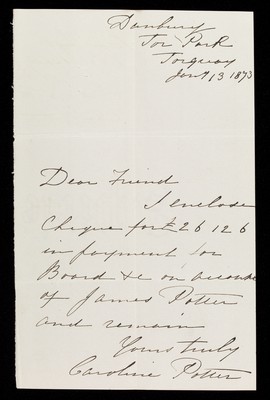 Danbury
Tor Park
Torquay
Jany 13 1873
Dear Friend
I enclose
Cheque for £26 12 6
in payment for
Board &c on account
of James Potter
and remain
Yours truly
Caroline Potter